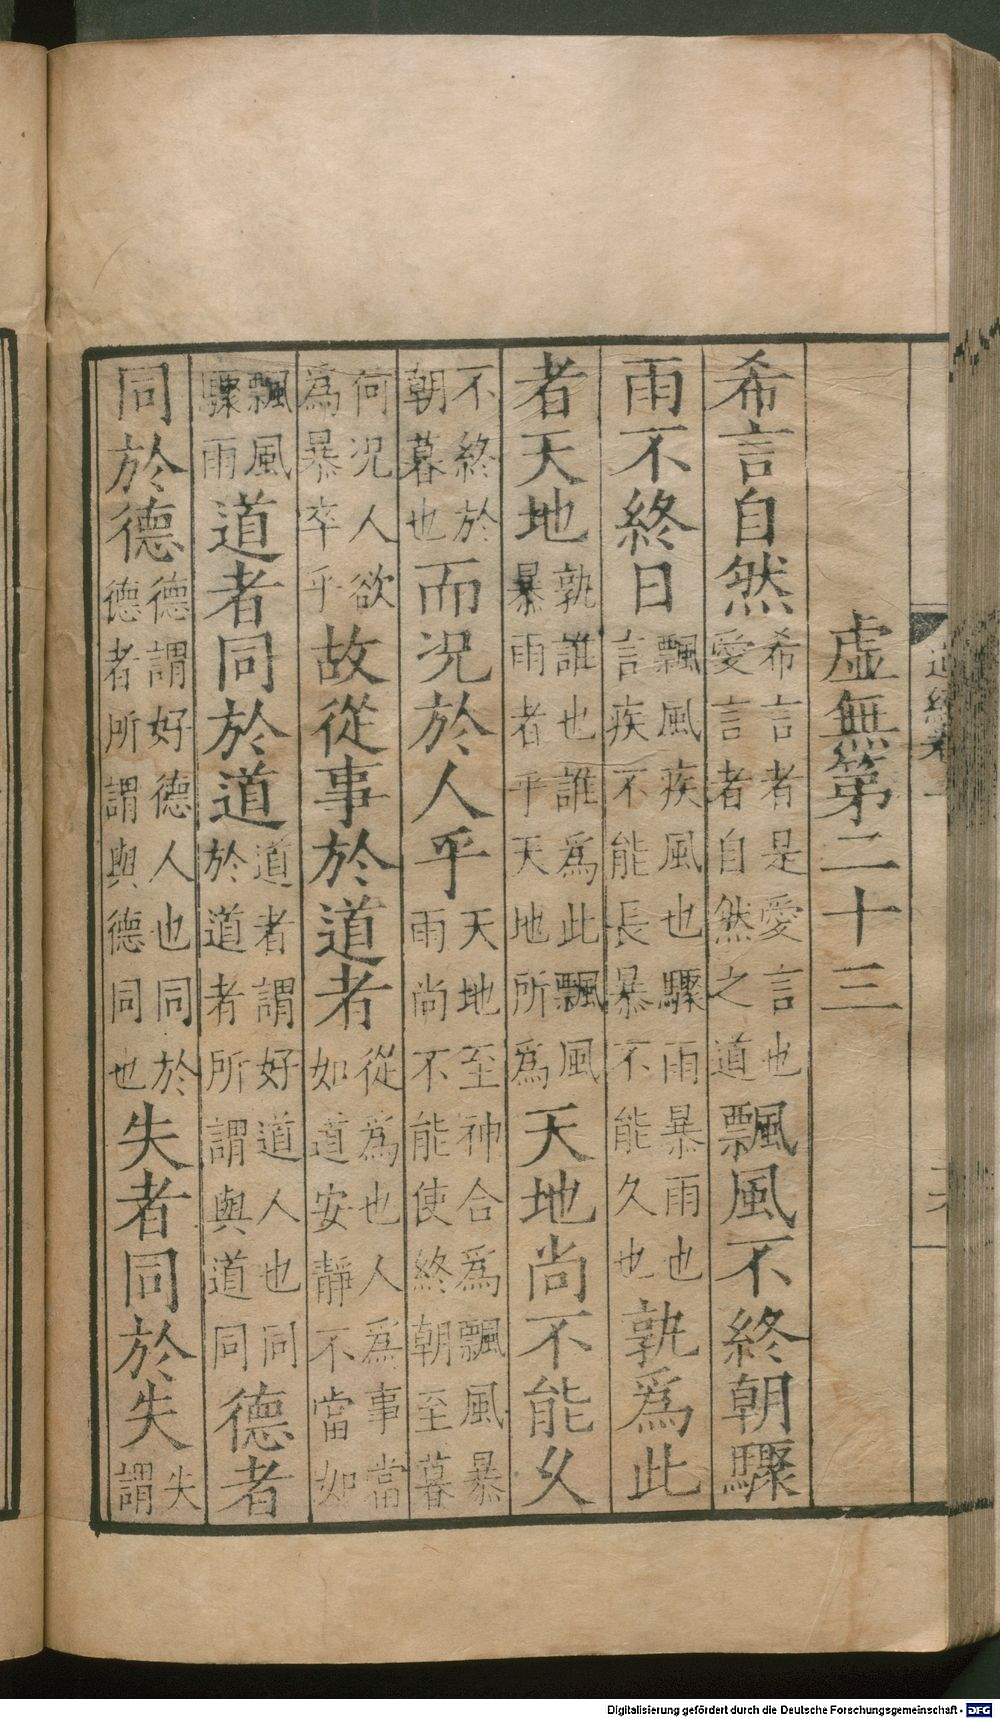 虛無第二十三
希言自然希言者是愛言也愛言者自然之道飄風不終朝驟
雨不終日飄風疾風也驟雨暴雨也言疾不能長暴不能久也孰爲此
者天地孰誰也誰爲此飄風暴雨者乎天地所爲天地尚不能久
不終於朝暮也而况於人乎天地至神合爲飄風暴雨尚不能使終朝至暮
何况人欲爲暴卒乎故從事於道者從爲也人爲事當如道安靜不當如
飄風驟雨道者同於道道者謂好道人也同於道者所謂與道同德者
同於德德謂好德人也同於德者所謂與德同也失者同於失失謂
Digitalisierung gefördert durch die Deutsche Forschungsgemeinschaft - DFG